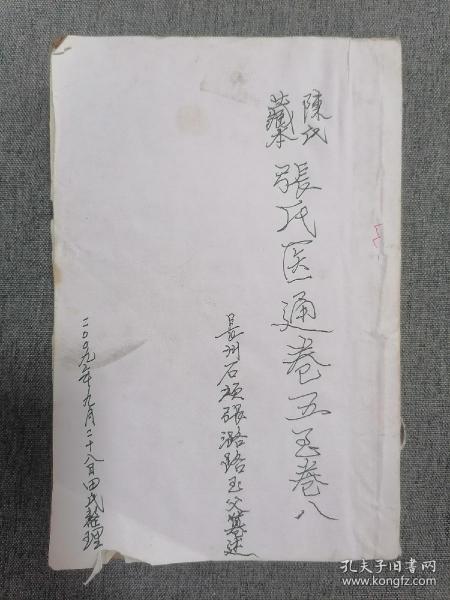 陳氏
藏本
張氏医通卷五至卷八
長州石頑張潞路玉父纂述
二00九年九月二十八日田氏整理
孔夫子旧书网
www.kongfz.com